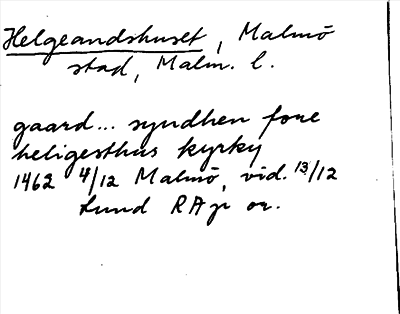 Helgeandshuset, Malmö
stad, Malm. l.
gaard... syndhen fore
heligesthus kyrky
1462 4/12 Malmö, vid. 13/12
Lund RAp or.